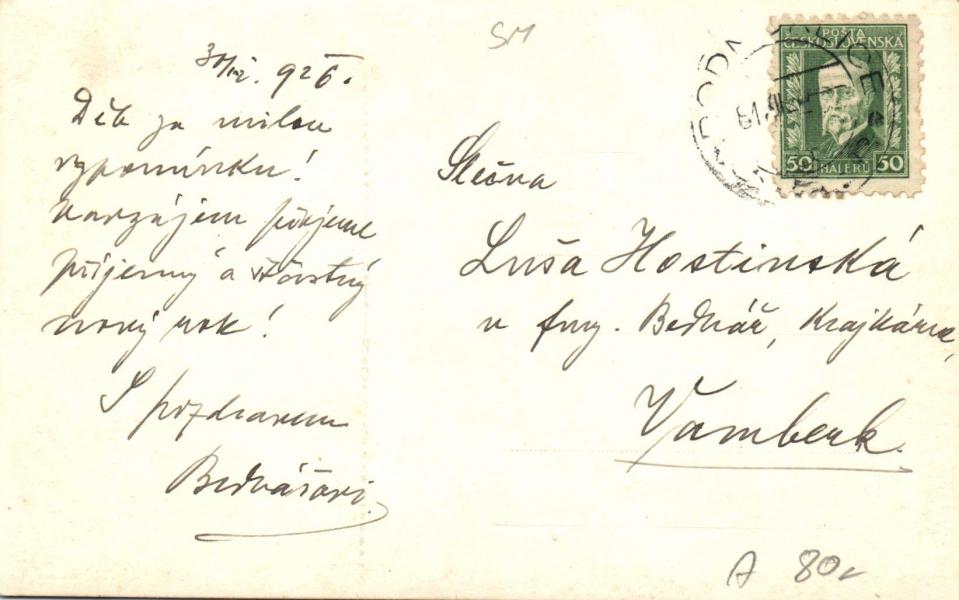 SM
30/12. 926.
Dík za milou
vzpomínku!
navzájem přejeme
příjemný a šťastný
nový rok!
S pozdravem
Bednářovi.
POŠTA
ČESKOSLOVENSKÁ
50 HALÉŘŮ 50
Slečna
Luša Hostinská
u fmy. Bednář, Krajkárna,
Vamberk.
A 80